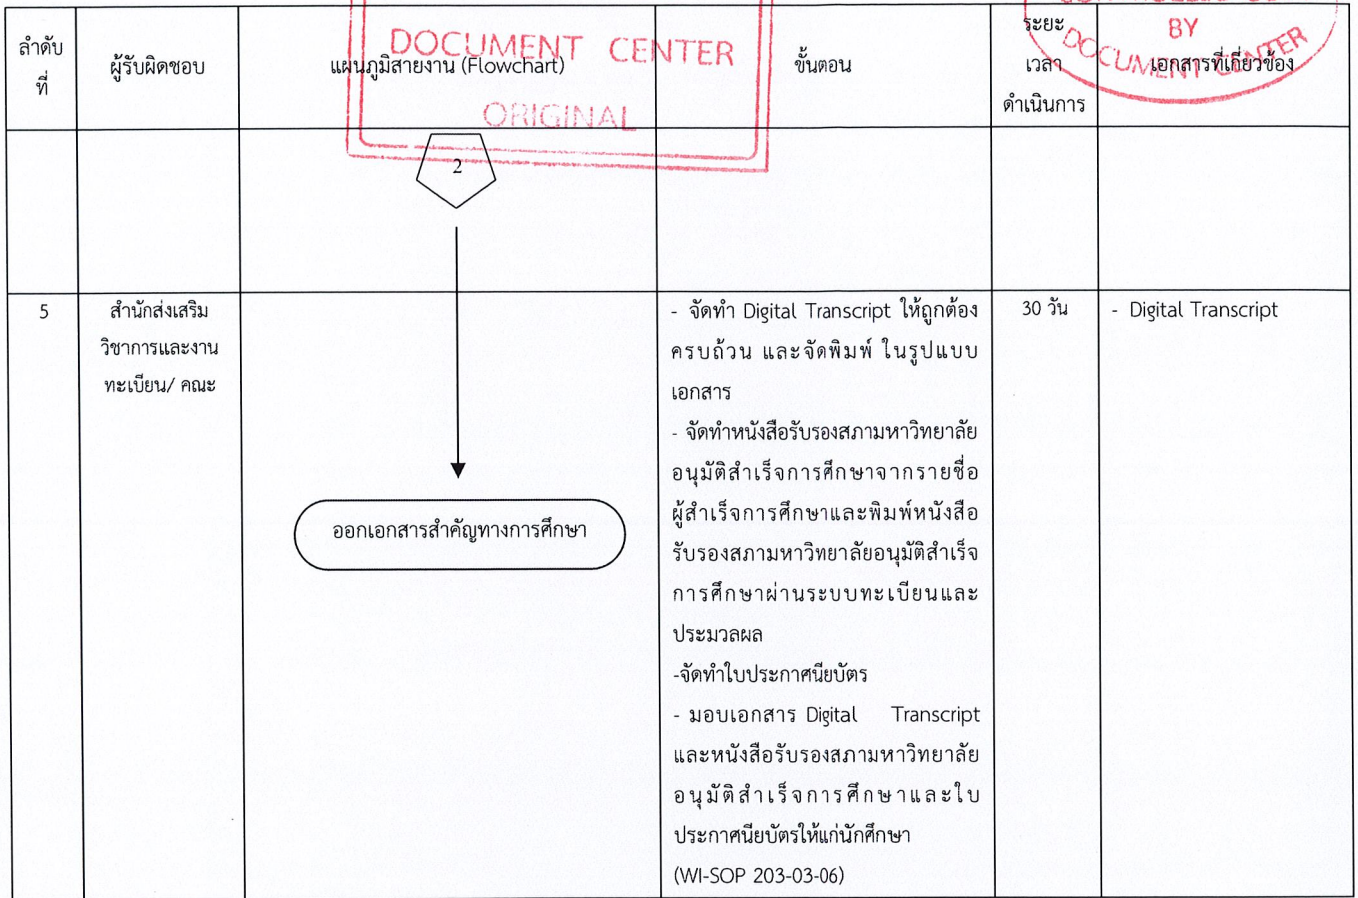 ลำดับ
ที่
ผู้รับผิดชอบ
แผนภูมิสายงาน (Flowchart)
ขั้นตอน
ระยะ
เวลา
ดำเนินการ
เอกสารที่เกี่ยวข้อง
DOCUMENT CENTER
ORIGINAL
BY
DOCUMENT CENTER
2
5
สำนักส่งเสริม
วิชาการและงาน
ทะเบียน/ คณะ
ออกเอกสารสำคัญทางการศึกษา
- จัดทำ Digital Transcript ให้ถูกต้อง
ครบถ้วน และจัดพิมพ์ ในรูปแบบ
เอกสาร
- จัดทำหนังสือรับรองสภามหาวิทยาลัย
อนุมัติสำเร็จการศึกษาจากรายชื่อ
ผู้สำเร็จการศึกษาและพิมพ์หนังสือ
รับรองสภามหาวิทยาลัยอนุมัติสำเร็จ
การศึกษาผ่านระบบทะเบียนและ
ประมวลผล
-จัดทำใบประกาศนียบัตร
- มอบเอกสาร Digital Transcript
และหนังสือรับรองสภามหาวิทยาลัย
อนุมัติสำเร็จการศึกษาและใบ
ประกาศนียบัตรให้แก่นักศึกษา
(WI-SOP 203-03-06)
30 วัน
- Digital Transcript